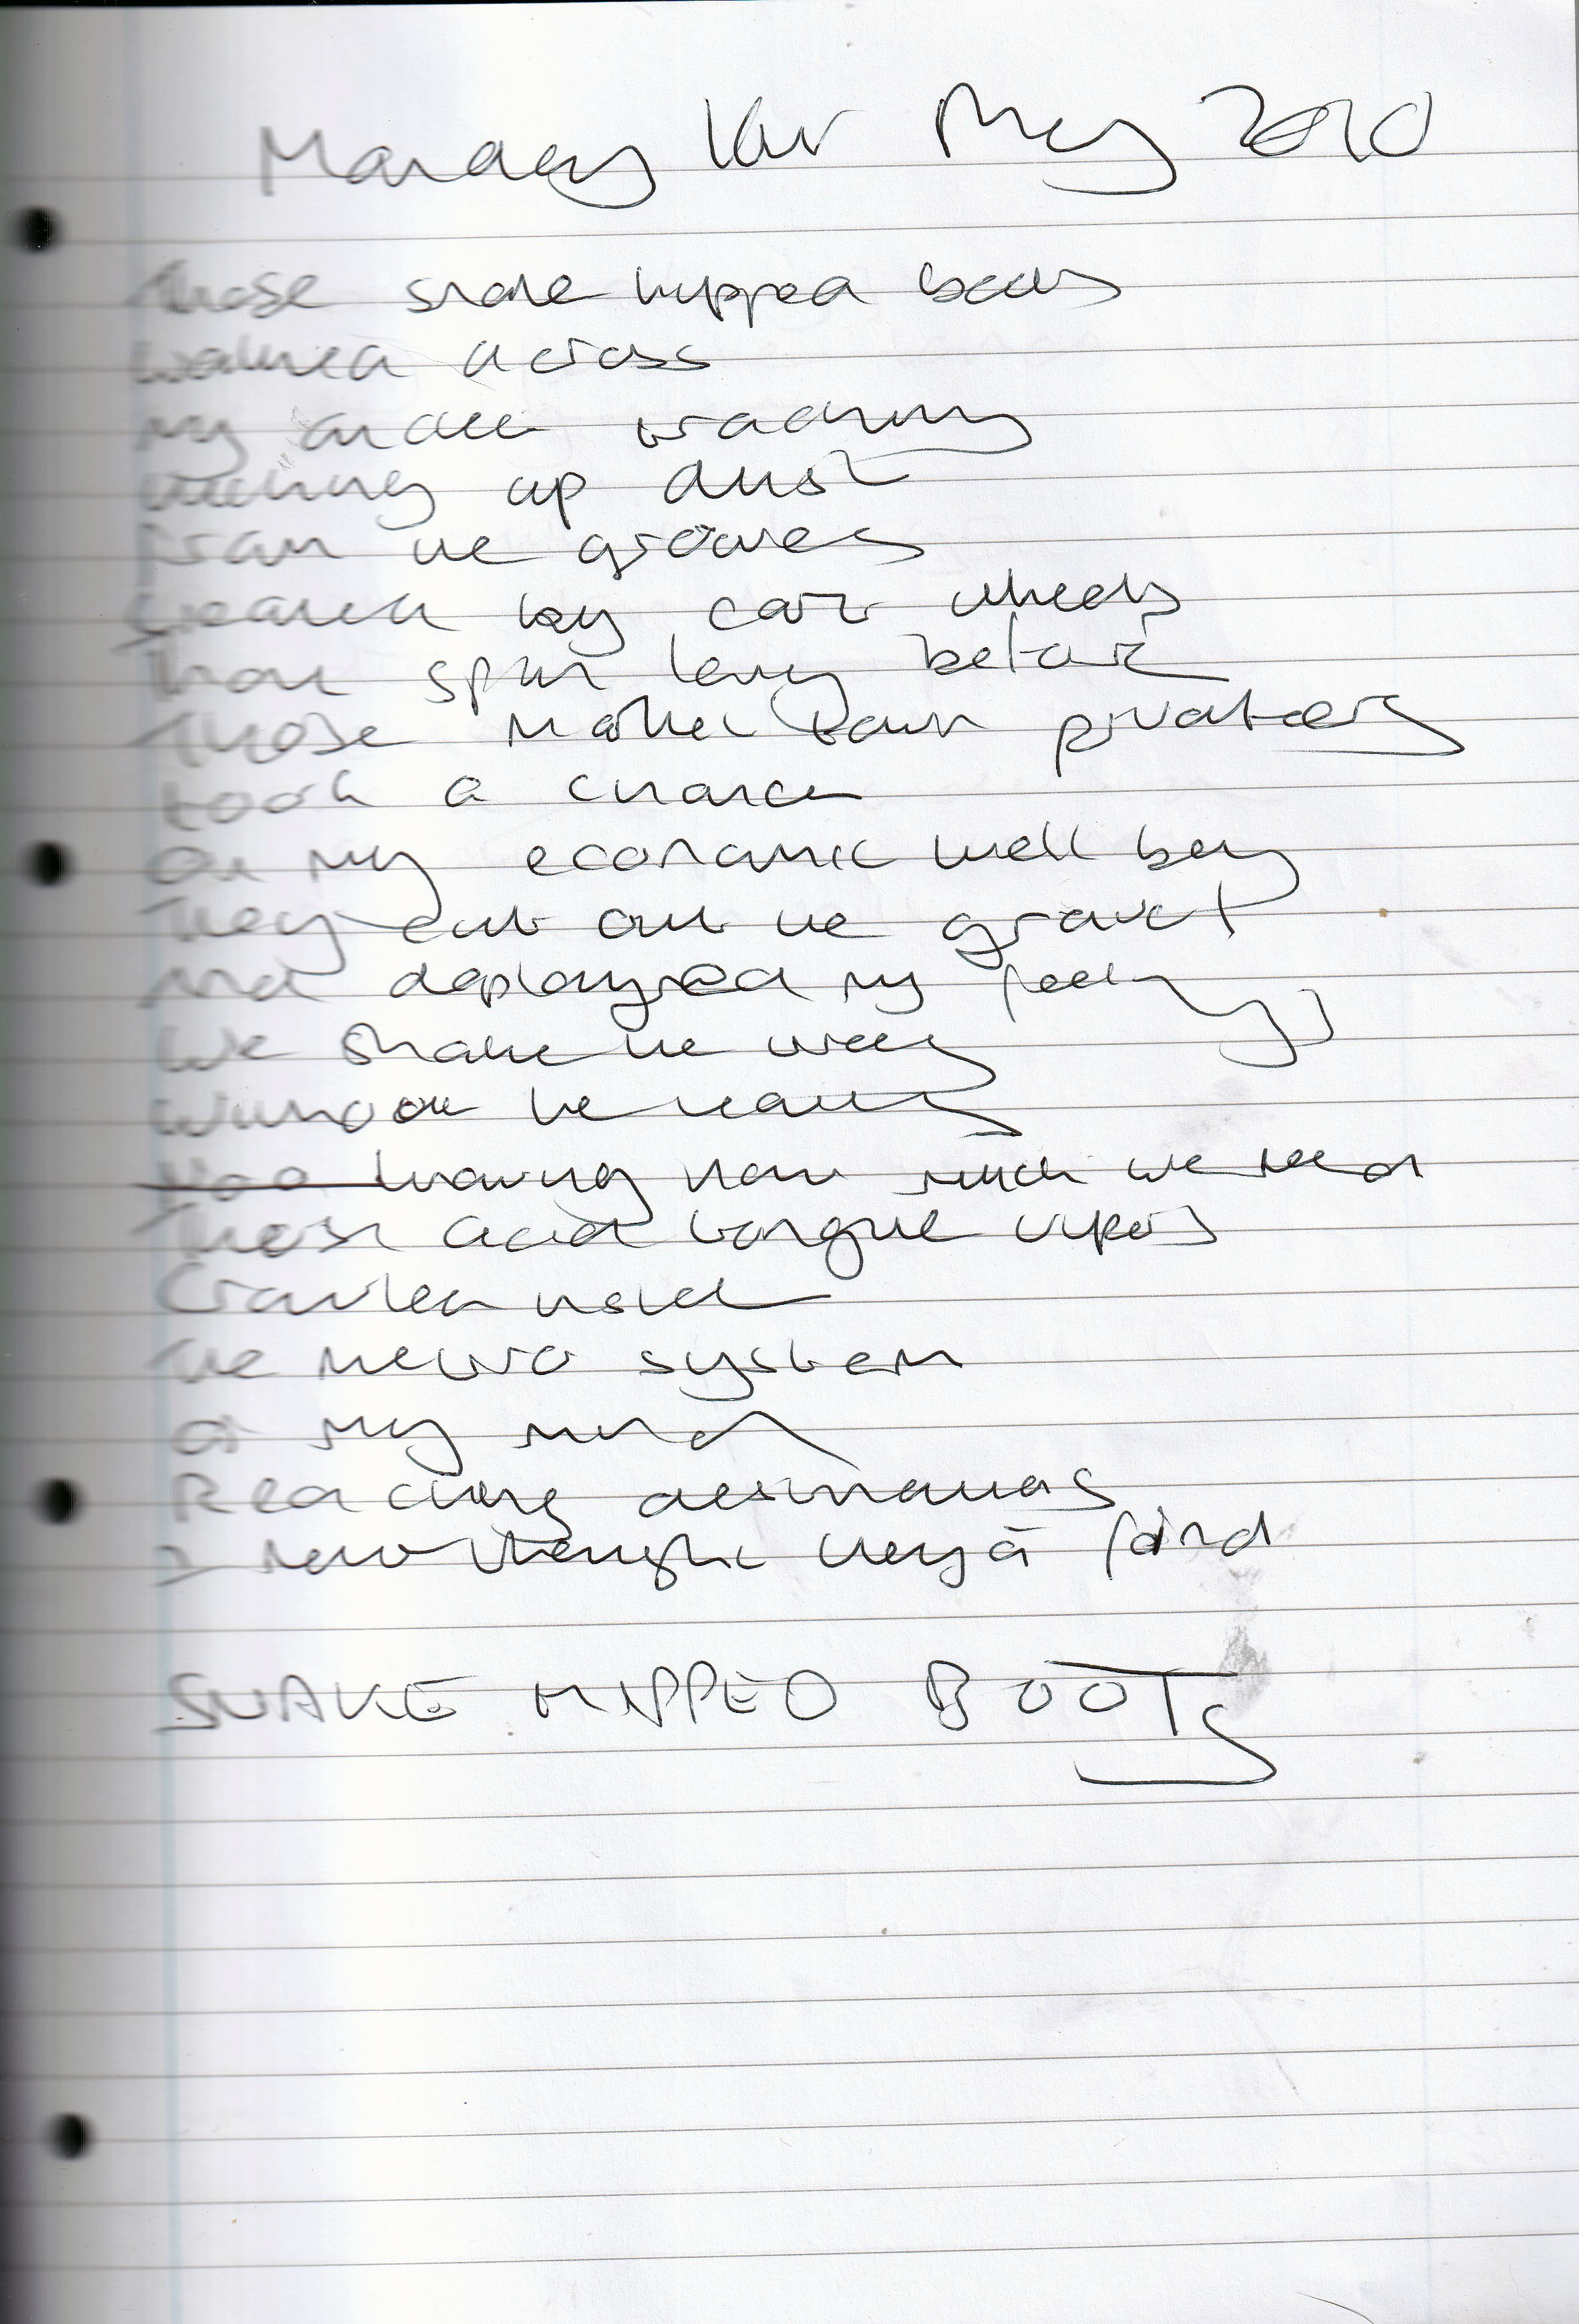 Monday May 2010
Those snake hipped boots
walked across
my
kicking up dust
from the grooves
by cart wheels
that spun long before
Those market town privateers
took a chance
on my economic well being
They cut out the gravel
and deployed my feelings
We snake the way
without the
knowing how much we need
Those acid tongue vipers
Crawled inside
The metro system
of my mind
Reaching destinations
I never thought they'd find
SNAKE HIPPED BOOTS